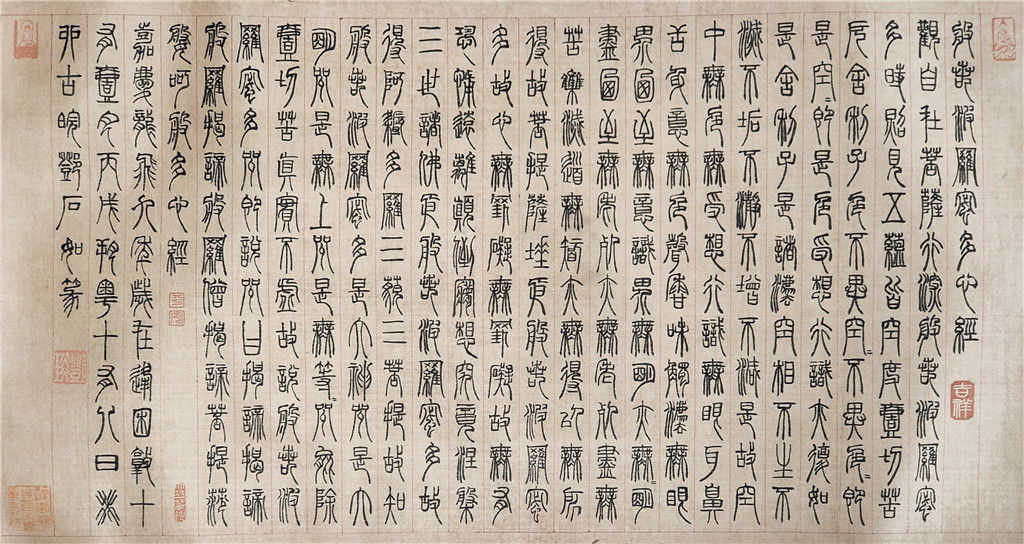 般若波羅密多心經
觀自在菩薩行深般若波羅密
多時照見五蘊皆空度壹切苦
厄舍利子色不異空=不異色=即
是空=即是色受想行識亦復如
是舍利子是諸法空相不生不
滅不垢不淨不增不減是故空
中無色無受想行識無眼耳鼻
舌身意無色聲香味觸法無眼
界乃至無意識界無明亦無=明
盡乃至無老死亦無老死盡無
苦集滅道無智亦無得以無所
得故菩提薩埵依般若波羅密
多故心無罣礙無罣礙故無有
恐怖遠離顛倒夢想究竟涅槃
三世諸佛依般若波羅密多故
得阿耨多羅三藐三菩提故知
般若波羅密多是大神咒是大
明咒是無上咒是無等=咒能除
壹切苦真實不虛故說般若波
羅密多咒即說咒曰揭諦揭諦
般羅揭諦般羅僧揭諦菩提薩
婆呵般多心經
嘉慶龍飛九年歲在逢困敦十
有壹月丙戌朔粵十有八日癸
卯古皖鄧石如篆
吉祥